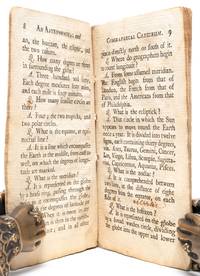 8 AN ASTRONOMICAL and
an, the horizon, the ecliptic, and the
two colures.
Q. How many degrees are there
in surrounding the globe?
A. Three hundred and sixty.
Each degree measures sixty miles,
and each mile is four
Q. How many smaller circles are
there?
A. Four; the two tropicks, and
two polar circles.
Q. What is the equator, or equi-
noctial line?
A. It is a line which encompasses
the Earth in the middle, from east to
west, on which the degrees of longi-
tude are marked.
Q. What is the meridian?
A. It is represented on the globe
by a brass ring, passing through the
it encompasses the globe
degrees of latitude
What is
and in
GEOGRAPHICAL CATECHISM. 9
places directly north or south of it.
Q. Where do geographers begin
to count longitude?
A. From some assumed meridian.
The English begin from that of
London, the French from that of
Paris, and the Americans from that
of Philadelphia.
Q. What is the ecliptick?
A. That circle in which the Sun
appears to move round the Earth
once a year. It is divided into twelve
signs, each containing thirty degrees,
viz. Aries, Taurus, Gemini, Cancer,
Leo, Virgo, Libra, Scorpio, Sagitta-
rius, Capricornus, Aquarius, Pisces.
Q. What is the zodiac?
A. It is comprehended between
two lines, at the distance of eight
degrees from the equator, on each
side of it.
Q. What is the horizon?
A. It is represented on the globe
by a broad wooden circle, dividing
the globe into the upper and lower